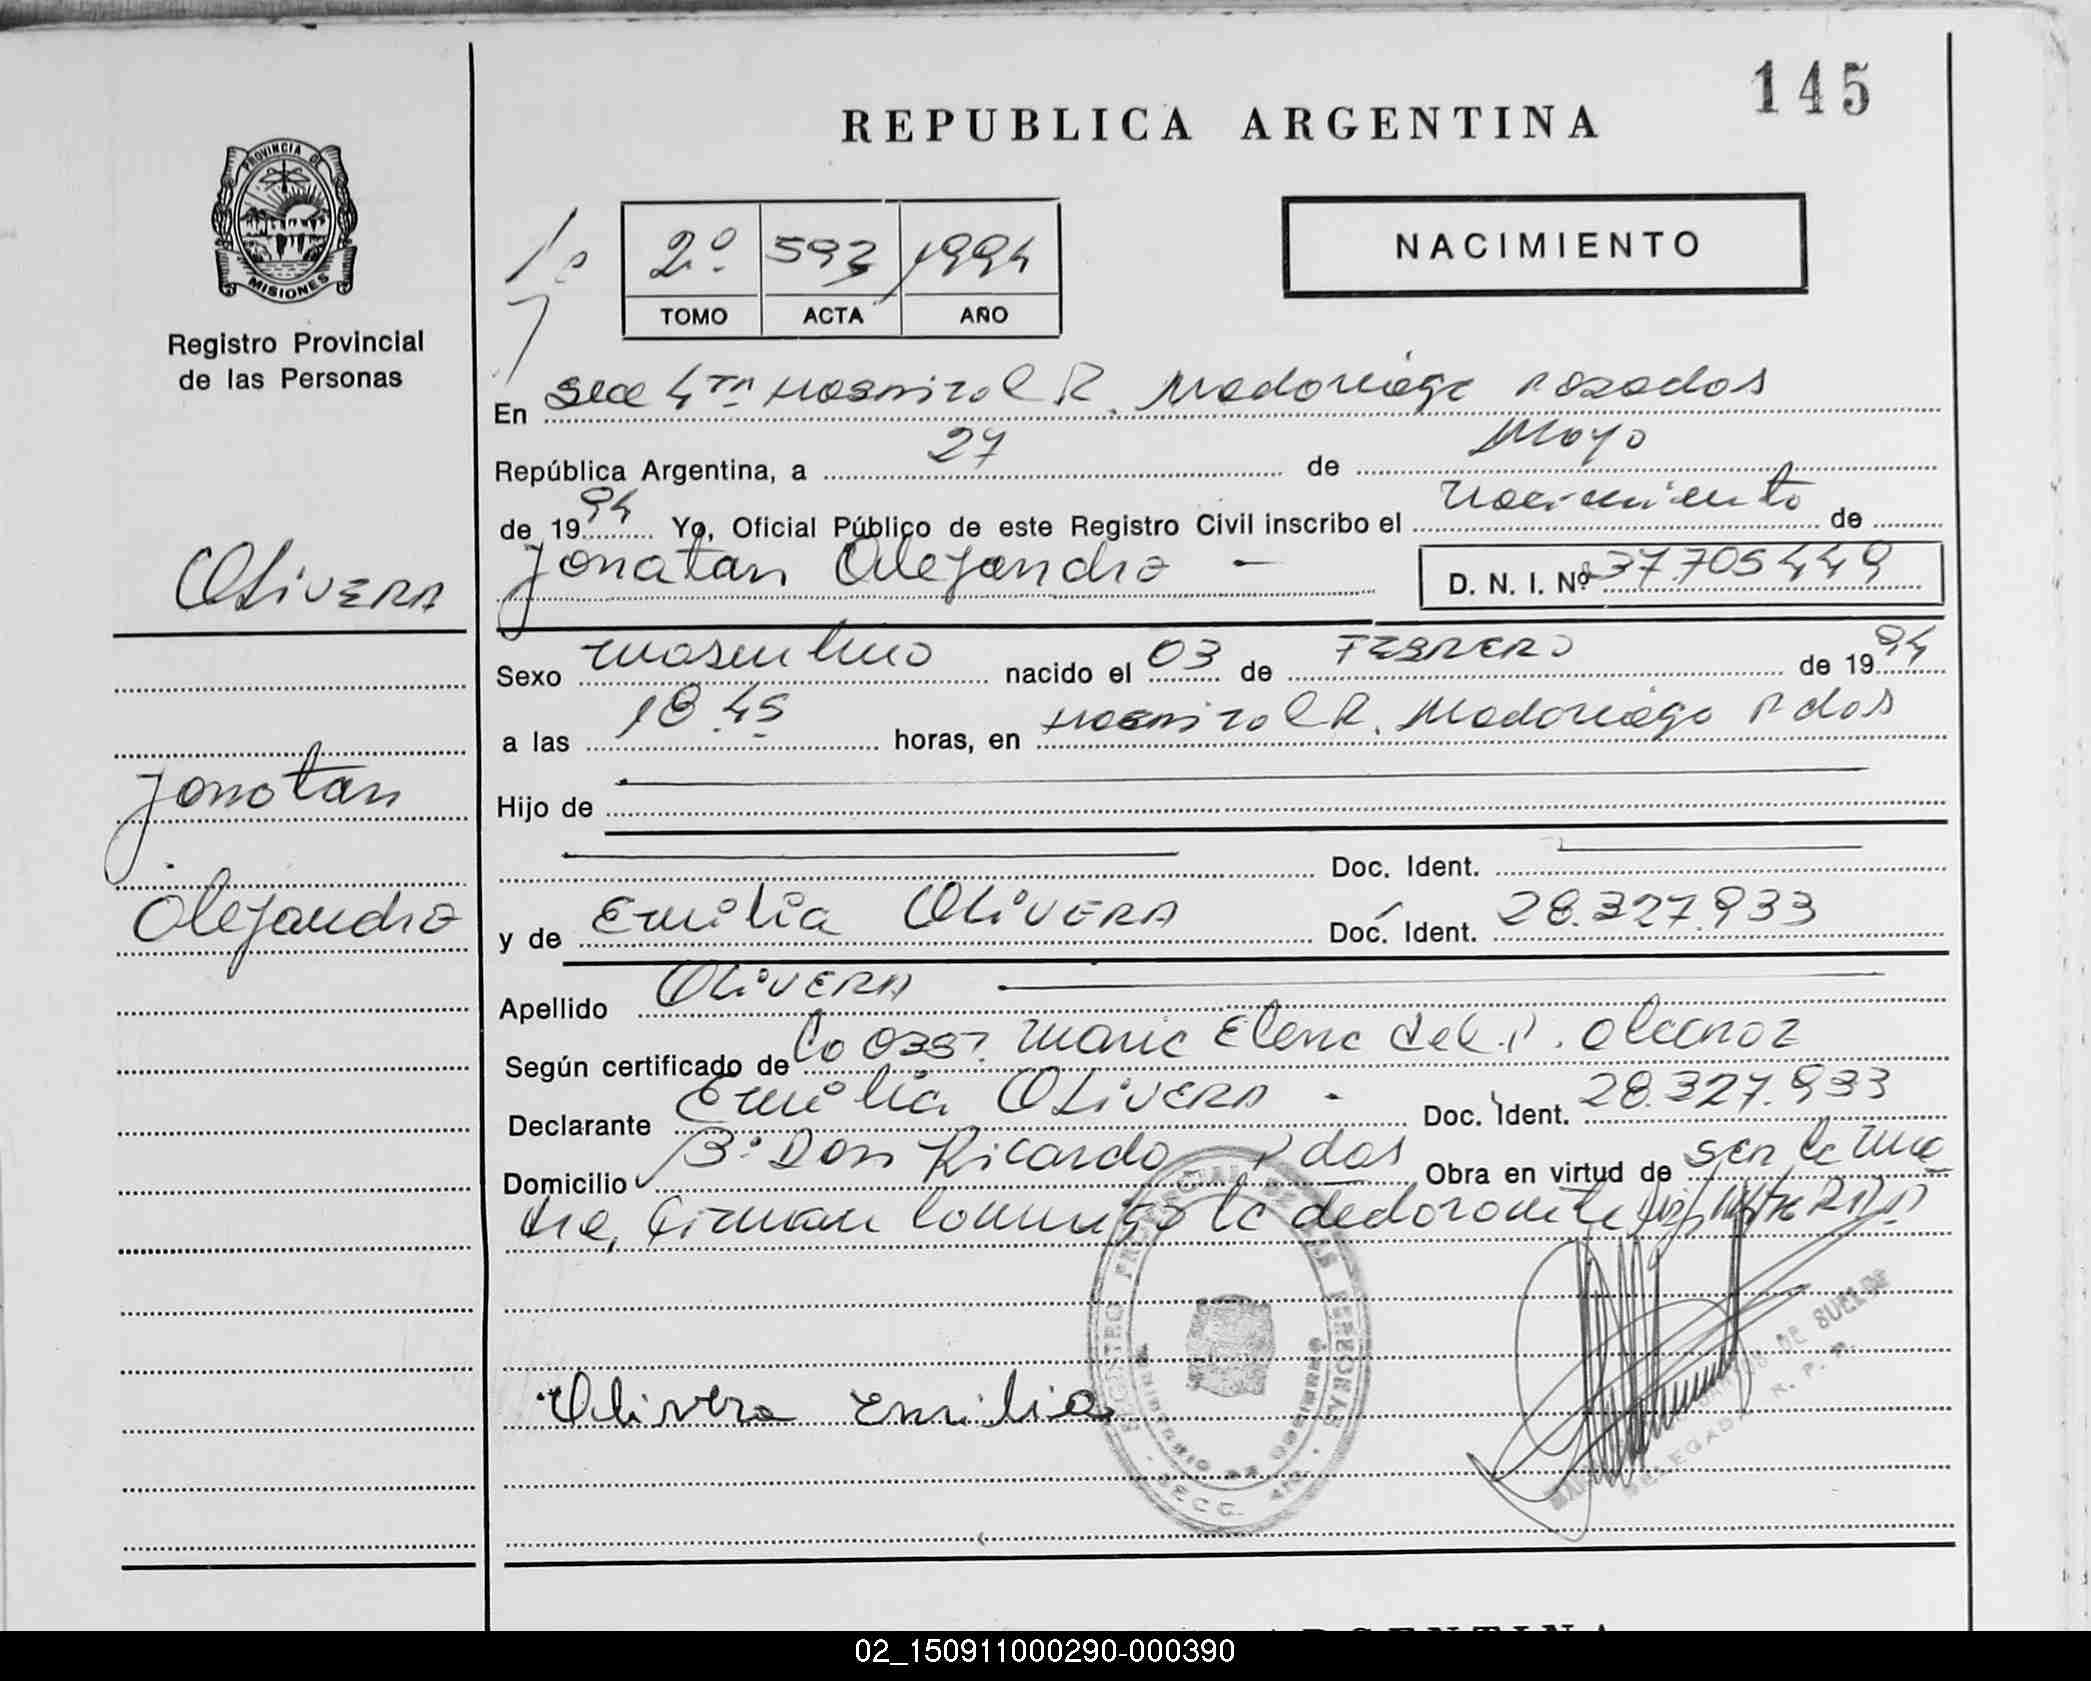 145
REPUBLICA ARGENTINA
PROVINCIA DE
MISIONES
Registro Provincial
de las Personas
NACIMIENTO
2º 593 1994
TOMO ACTA AÑO
En Secc 4ta Hospital R. Madariaga Posadas
República Argentina, a 27 de Mayo
de 1994 Yo, Oficial Público de este Registro Civil inscribo el nacimiento de
OLIVERA
Jonatan Alejandro - D. N. I. Nº 37.705449
Sexo masculino nacido el 03 de FEBRERO de 1994
a las 18.45 horas, en Hospital R. Madariaga Pdas
Jonatan
Hijo de
Doc. Ident.
Alejandro
y de Emilia OLIVERA Doc. Ident. 28.327.933
Apellido OLIVERA
Según certificado de la Obst. Maria Elena del P.
Declarante Emilia OLIVERA - Doc. Ident. 28.327.933
Domicilio Bº Don Ricardo Pdas Obra en virtud de ser la ma
dre, firman conmigo la declarante
REGISTRO PROVINCIAL DE LAS PERSONAS
MINISTERIO DE GOBIERNO
SECC. 4ta.
DE SUELDE
DELEGADA R. P. P.
Olivera Emilia
ARGENTINA
02_150911000290-000390